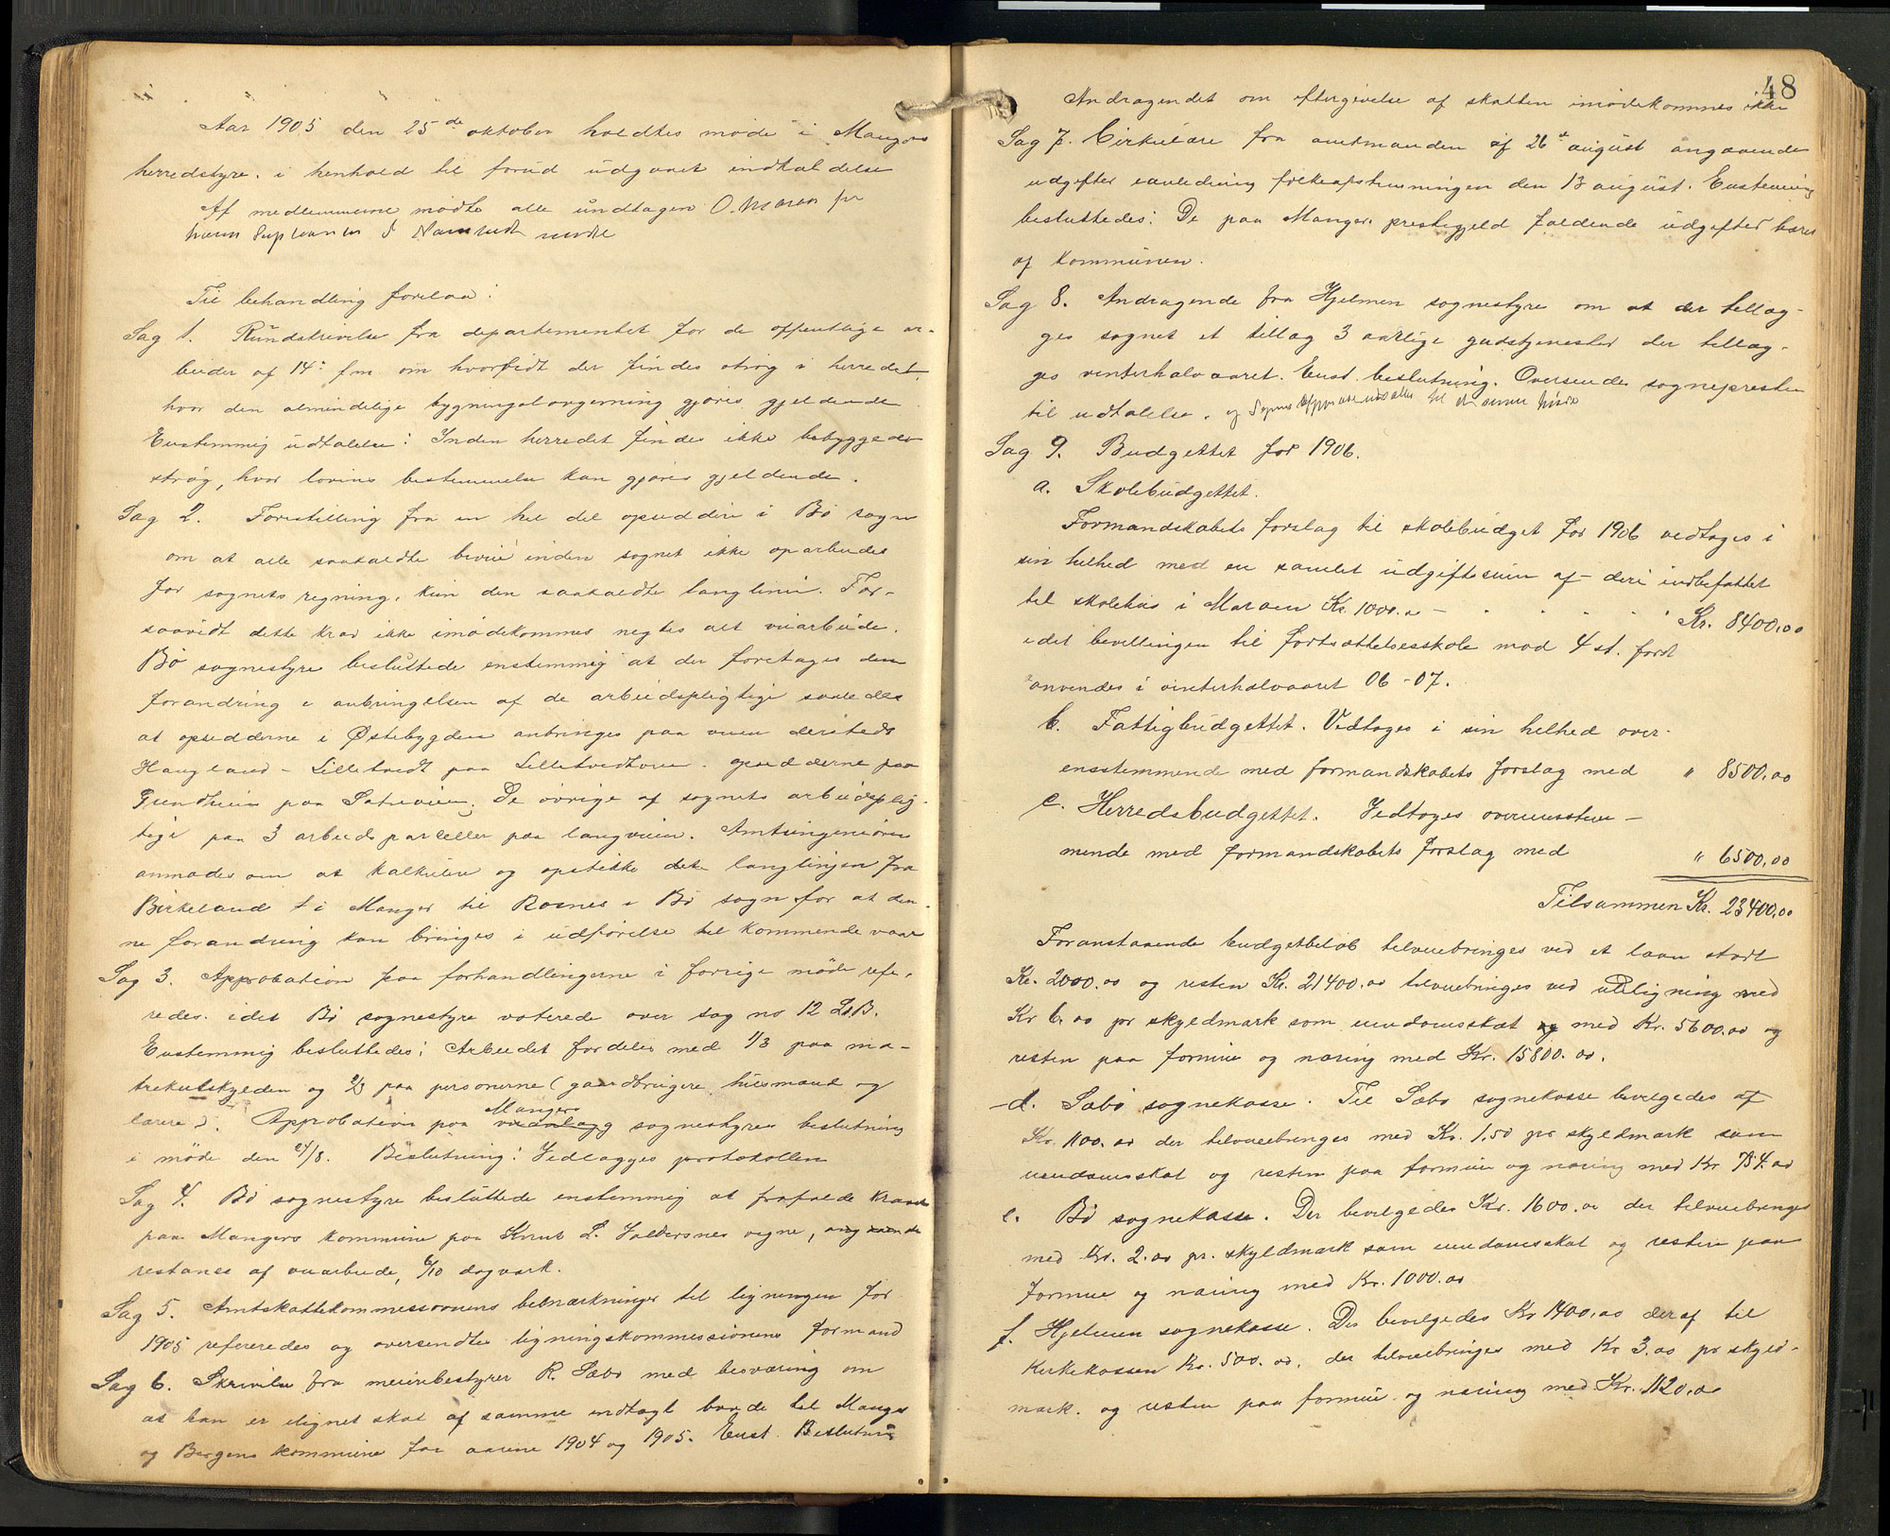 Aar 1905 den 25de oktober holdtes møde i Mangers
herredstyre. i henhold til forud udgaaet indkaldelse
Af medlemmerne mødte alle undtagen O. Maraas for
ham Suppleanten S Namtvedt mødte
Til behandling forelaa:
Sag 1. Rundskrivelse fra departementet for de offentlige ar-
beider af 14: f.m. om hvorvidt der findes strøg i herredet,
hvor den almindelige bygningslovgivning gjøres gjeldende
Enstemmig udtalelse: Inden herredet findes ikke bebyggede
strøg, hvor lovens bestemmelse kan gjøres gjeldende.
Sag 2. Forestilling fra en hel del opsiddere i Bø sogn
om at alle saakaldte biveie inden sognet ikke oparbeides
for sognets regning, kun den saakaldte langlinie. For-
saavidt dette krav ikke imødekommes negtes alt veiarbeide.
Bø sognestyre besluttede enstemmig at der foretages den
forandring i anbringelsen af de arbeidspligtige saaledes
at opsidderne i Østebygden anbringes paa veien
Haugland - Lilletvedt paa Lilletvedtveien. opsidderne paa
Grindheim paa Sætreveien. De øvrige af sognets arbeidsplig-
tige paa 3 arbeidsparseller paa langveien. Amtsingeniøren
anmodes om at kalkulere og opstikke dele langlinjen fra
Birkeland i Manger til Rosnes i Bø sogn for at den-
ne forandring kan bringes i udførelse til kommende vaar
Sag 3. Approbation paa forhandlingerne i forrige møde refe-
redes. idet Bø sognestyre voterede over sag no 12 LB.
Enstemmig besluttedes: Arbeidet fordeles med 1/3 paa ma-
trikulskylden og 2/3 paa personerne (gaardbrugere, husmænd og
lærere). Approbation paa Mangers sognestyres beslutning
i møde den 24/8. Beslutning: Vedlægges protokollen
Sag 4. Bø sognestyre besluttede enstemmig at frafalde kravet
paa Mangers kommune paa Knut L. Valdersnes vegne, angaaende
restance af veiarbeide, 6/10 dagverk.
Sag 5. Amtskattekommissionens bemærkninger til ligningen for
1905 refereredes og oversendtes ligningskommissionens formand
Sag 6. Skrivelse fra meieribestyrer R. Sæbø med besværing om
at han er ilignet skat af samme indtægt baade til Manger
og Bergens kommune for aarene 1904 og 1905. Enst. Beslutning
48
Andragendet om eftergivelse af skatten imødekommes ikke
Sag 7. Cirkulære fra amtmanden af 26de august angaaende
udgifter i anledning folkeafstemningen den 13 august. Enstemmig
besluttedes: De paa Manger prestegjeld faldende udgifter bæres
af kommunen.
Sag 8. Andragende fra Hjelmen sognestyre om at der tillæg-
ges sognet et tillæg 3 aarlige gudstjenester der tillæg-
ges vinterhalvaaret. Enst. beslutning. Oversendes sognepresten
til udtalelse.
Sag 9. Budgettet for 1906.
a. Skolebudgettet.
Formandskabets forslag til skolebudget for 1906 vedtages i
sin helhed med en samlet udgiftssum af - deri indbefattet
til skolehus i Maraas Kr. 1000.00 - Kr. 8400,00
idet bevillingen til fortsættelsesskole mod 4 st. først
anvendes i vinterhalvaaret 06-07.
b. Fattigbudgettet. Vedtages i sin helhed over-
ensstemmende med formandskabets forslag med " 8500,00
c. Herredsbudgettet. Vedtages overensstem-
mende med formandskabets forslag med " 6500,00
Tilsammen Kr. 23400,00
Foranstaaende budgetbeløb tilveiebringes ved et laan stort
Kr. 2000.00 og resten Kr. 21400.00 tilveiebringes ved udligning med
Kr 6.00 pr skyldmark som eiendomsskat og med Kr. 5600.00 og
resten paa formue og næring med Kr. 15800.00.
d. Sæbø sognekasse. Til Sæbø sognekasse bevilgedes af
Kr. 1100.00 der tilveiebringes med Kr. 1,50 pr skyldmark som
eiendomsskat og resten paa formue og næring med Kr 754.00
e. Bø sognekasse. Der bevilgedes Kr. 1600.00 der tilveiebringes
med Kr. 2.00 pr. skyldmark som eiendomsskat og resten paa
formue og næring med Kr. 1000.00
f. Hjelmen sognekasse. Der bevilgedes Kr 1400,00 deraf til
Kirkekassen Kr. 500.00. der tilveiebringes med Kr 3.00 pr skyld-
mark. og resten paa formue og næring med Kr. 1120,00